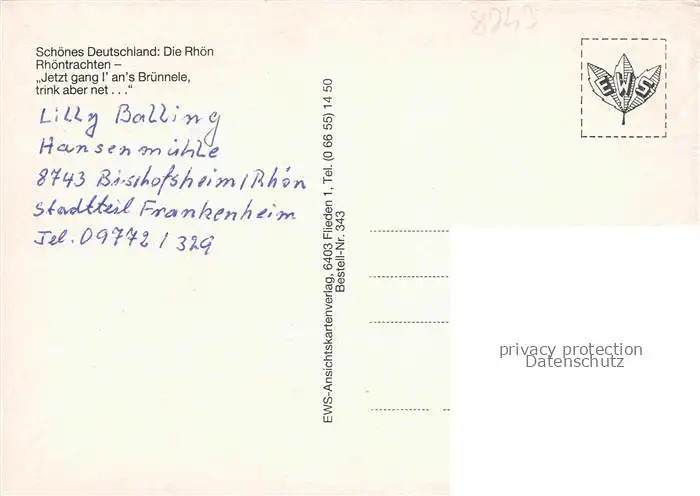 8743
Schönes Deutschland: Die Rhön
Rhöntrachten –
„Jetzt gang I' an's Brünnele,
trink aber net . . .“
Lilly Balling
Hansenmühle
8743 Bischofsheim/Rhön
Stadtteil Frankenheim
Tel. 09772 / 329
EWS-Ansichtskartenverlag, 6403 Flieden 1, Tel. (0 66 55) 14 50
Bestell-Nr. 343
EWS
privacy protection
Datenschutz